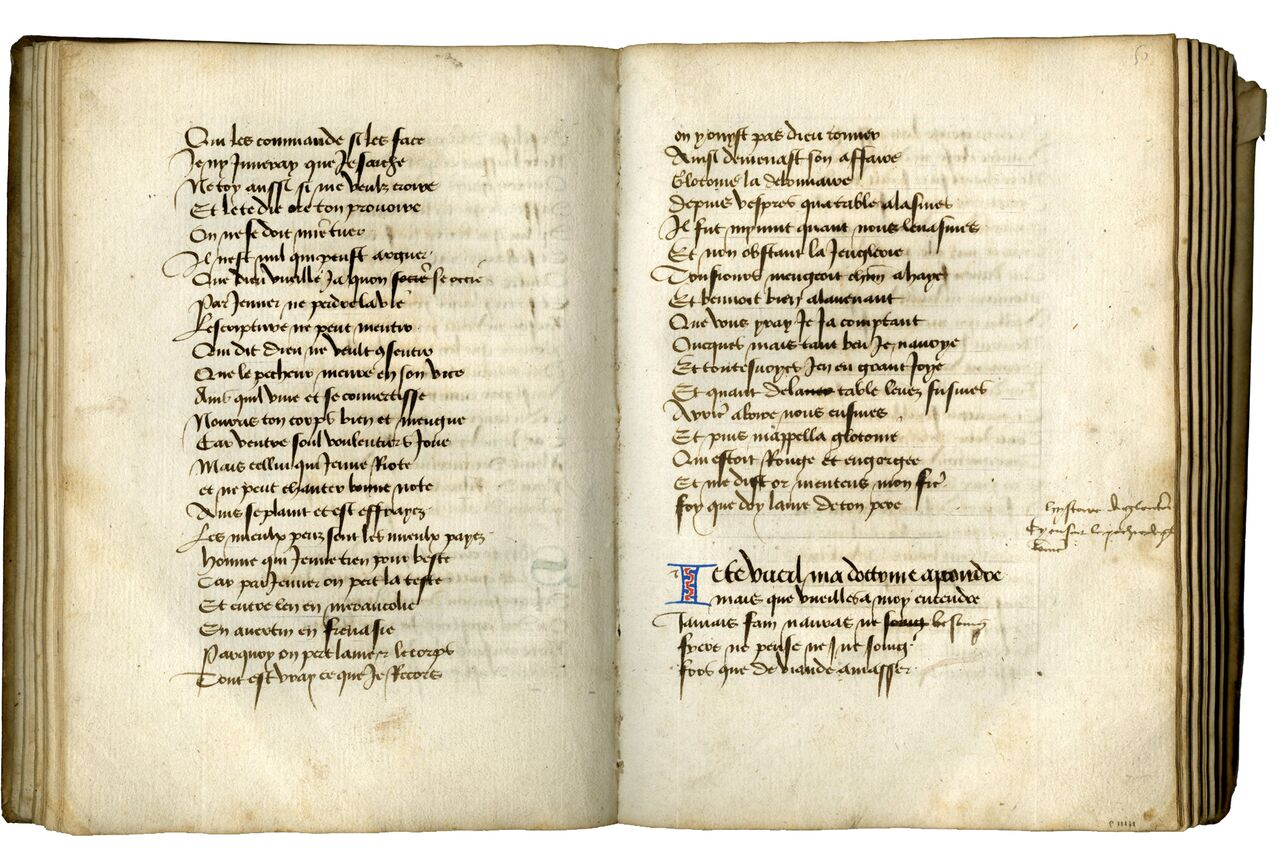 Qui les commande si les face
Je ny Juneray que Je saiche
Ne toy aussi si me veulz croire
Et le te die ore ton prouoire
On ne se doit mie tuer
Il nest nul qui peust arguer
Que dieu vueille Ja quon se occie
Par Jeuner ne perdre la vie
Lescripture ne peut mentir
Qui dit dieu ne veult 9sentir
Que le pecheur meure en son vice
Ains quil viue et se conuertisse
Nourris ton corps bien et mengue
Car ventre soul voulentiers Joue
Mais cellui qui Jeune Riote
et ne peut chanter bonne note
Ains se plaint et est effrayez
Les mieulx peuz sont les mieulx payez
Homme qui Jeune tien pour beste
Car par Jeuner on pert la teste
Et entre len en merancolie
En auertin en frenasie
Parquoy on pert lame & le corps
Tout est vray ce que Je Recors
50
on y ouyst pas dieu tonner
Ainsi demenast son affaire
Glotonie la debonnaire
depuis vespres qua table alasmes
Il fut mynuit quant nous leuasmes
Et non obstant la Jenglerie
Tousiours mengoit ahaye
Et beuuoit bien alauenant
Que vous yray Je Ja comptant
Oncques mais tant beu Je nauoye
Et toutesuoyes Jen eu grant Joye
Et quant dela table leuez fusmes
Aprés aboire nous eusmes
Et puis mappella glotonie
Qui estoit Rouge et engorgee
Et me dist or mentens mon filz
foy que doy lame de ton pere
hystoire de glotonie
Ie te vueil ma doctrine aprendre
mais que vueilles a moy entendre
Jamais fain nauras ne besoing
frere ne pense ne ne soing
fors que de viande amasser